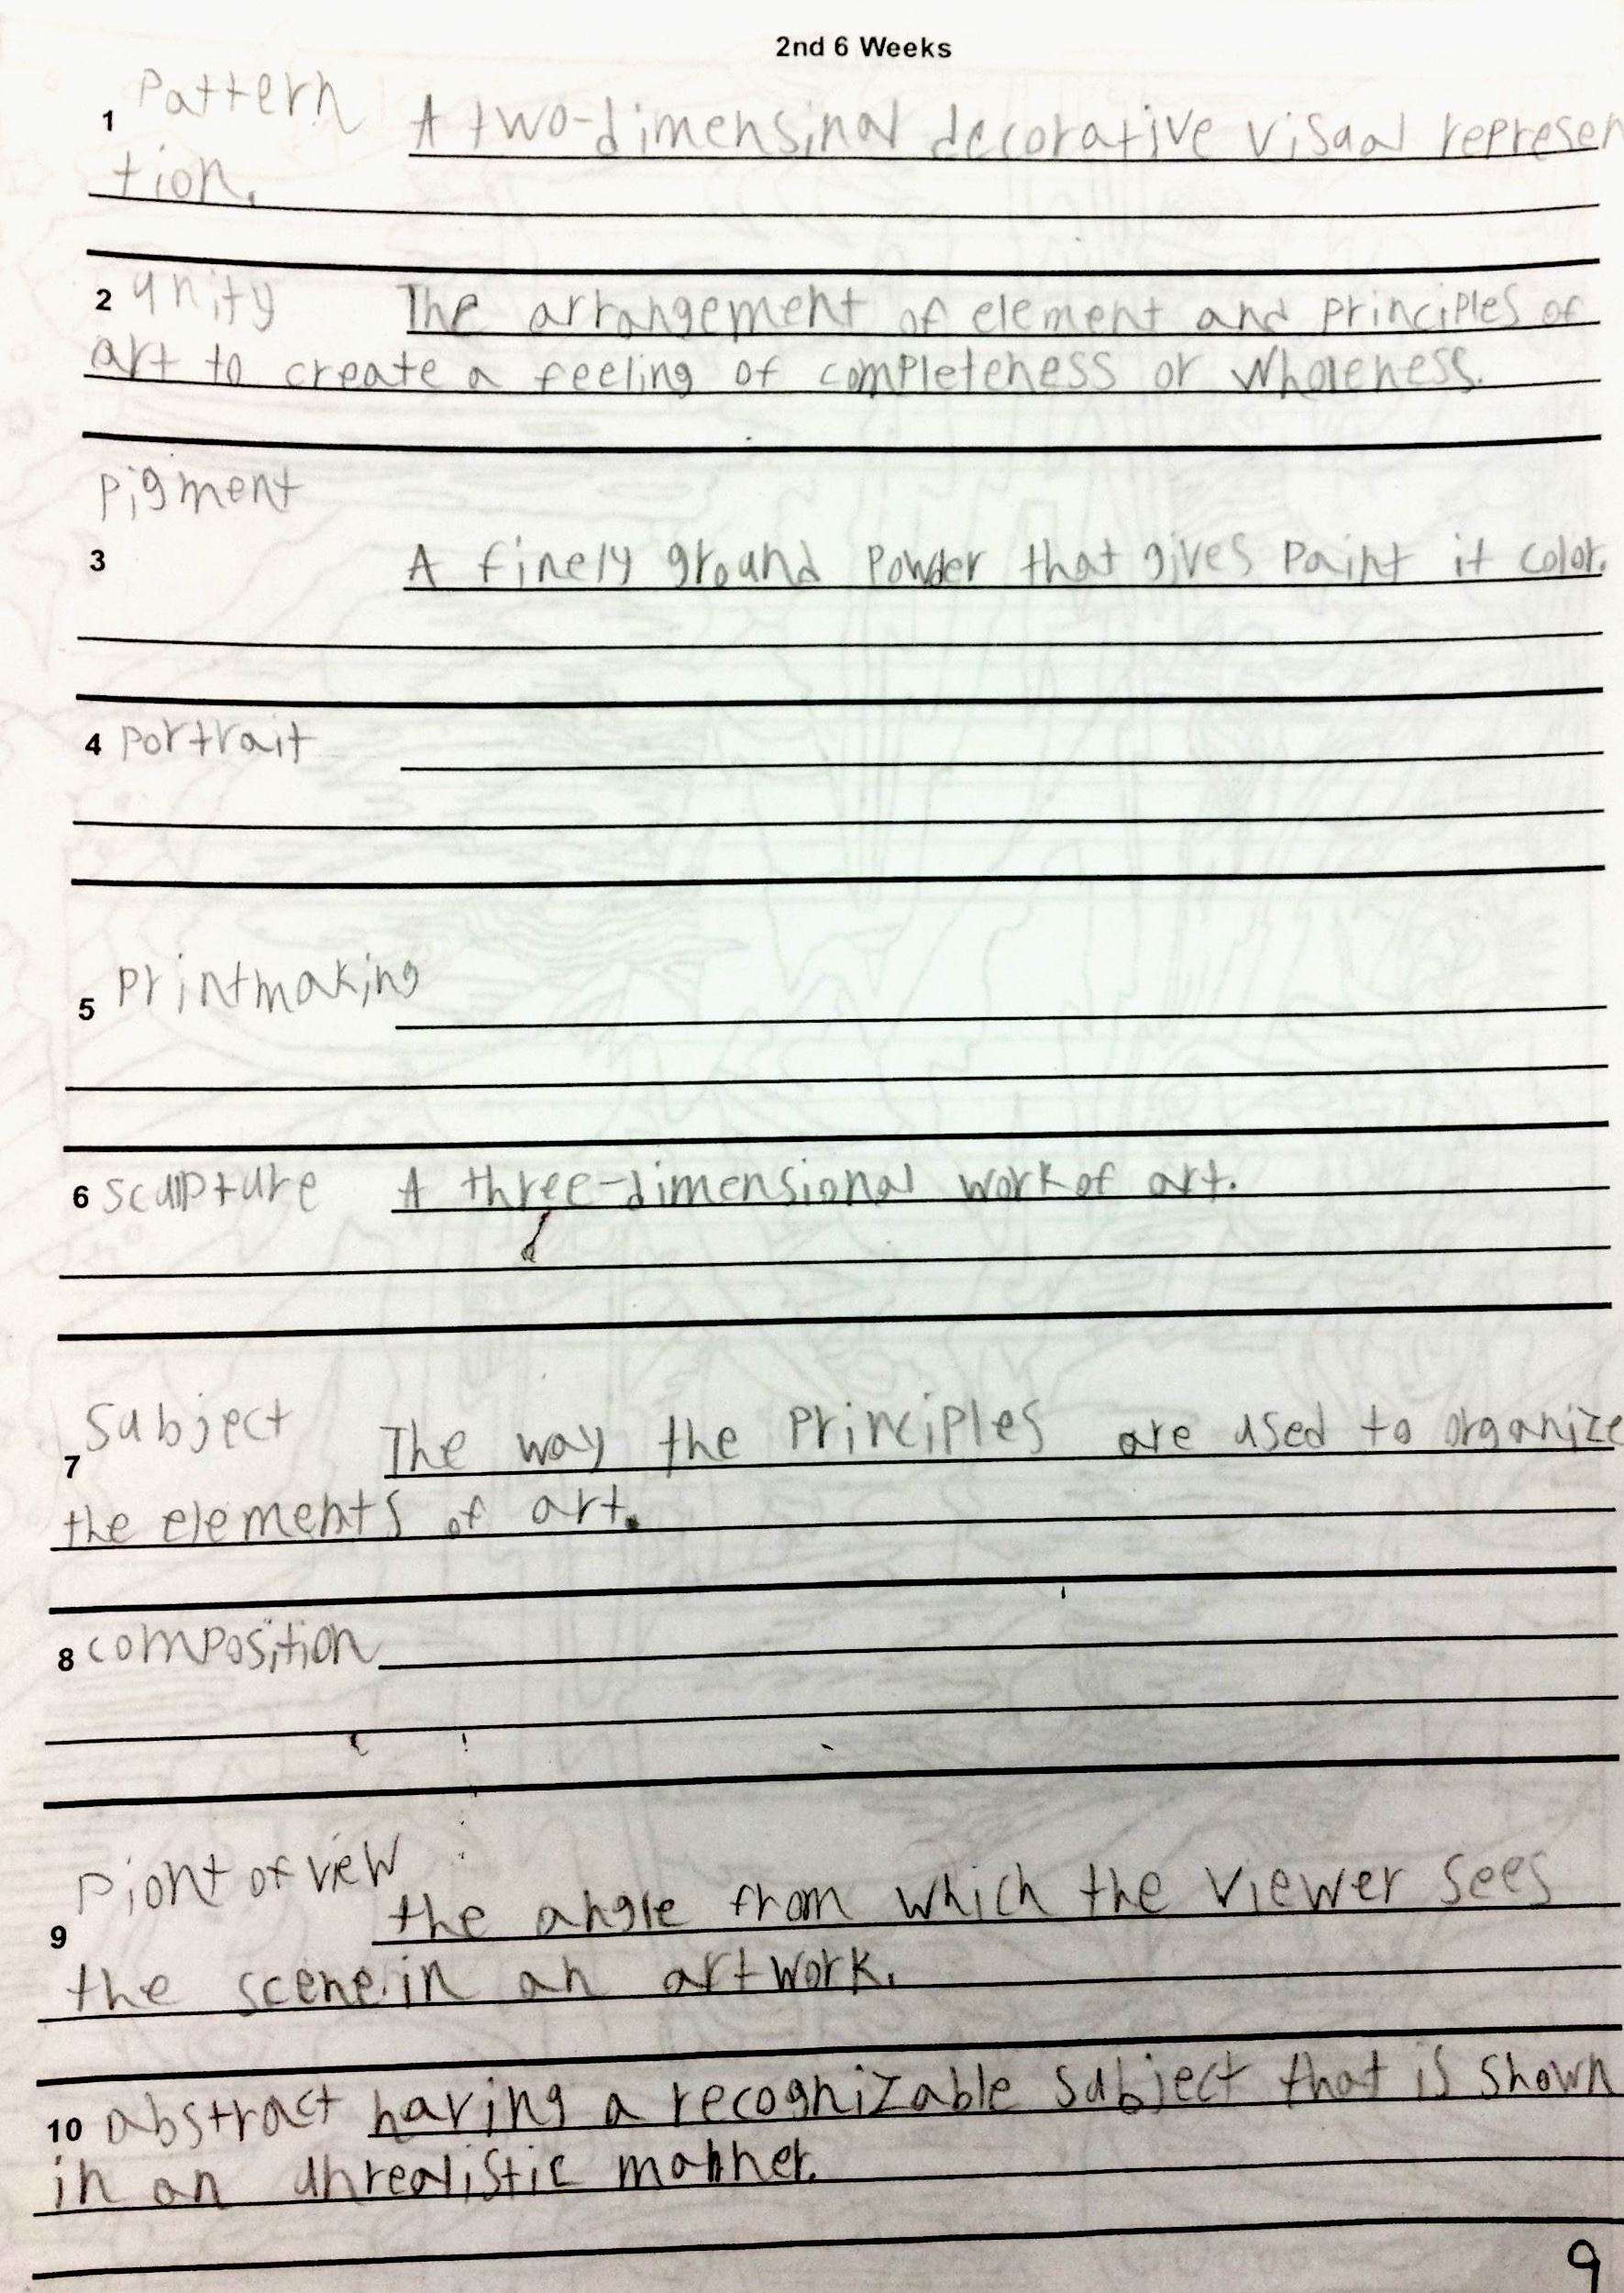 2nd 6 Weeks
1 Pattern A two-dimensinal decorative visual represen
tion.
2 unity The arrangement of element and principles of
art to create a feeling of completeness or wholeness.
pigment
3 A finely ground Powder that gives paint it color.
4 portrait
5 printmaking
6 sculpture A three-dimensional work of art.
Subject The way the principles are used to organize
7
the elements of art.
8 composition
Piont of view
9 the angle from which the viewer sees
the scene in an artwork.
10 abstract having a recognizable subject that is shown
in an unrealistic manner.
9